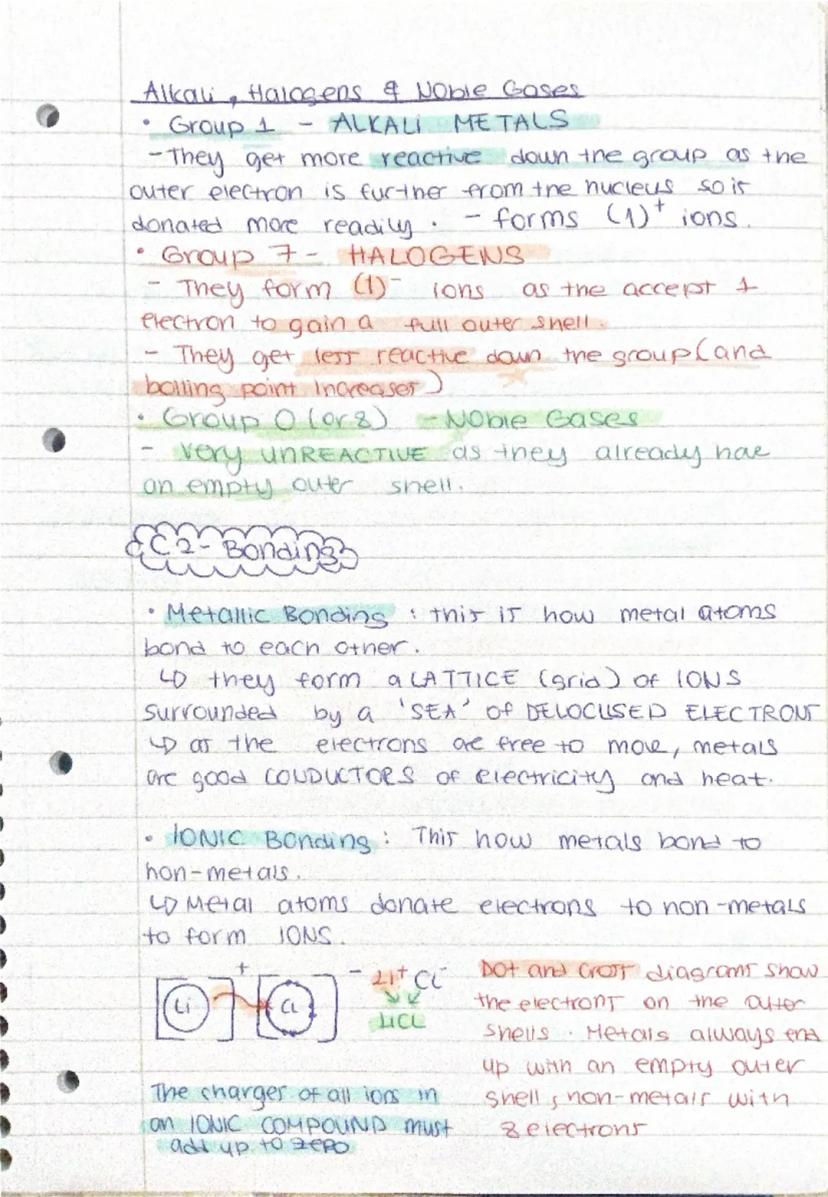 Alkali, Halogens & Noble Gases
• Group 1 - ALKALI METALS
- They get more reactive down the group as the
outer electron is further from the nucleus so is
donated more readily. - forms (1)+ ions.
• Group 7 - HALOGENS
- They form (1)- ions as the accept 1
electron to gain a full outer shell.
- They get less reactive down the group (and
boiling point increases)
• Group 0 (or 8) - Noble Gases
- very UNREACTIVE as they already have
an empty outer shell.
C2 - Bonding
• Metallic Bonding : this is how metal atoms
bond to each other.
↳ they form a LATTICE (grid) of IONS
surrounded by a 'SEA' of DELOCUSED ELECTRONS
↳ as the electrons are free to move, metals
are good CONDUCTORS of electricity and heat.
• IONIC Bonding : This how metals bond to
non-metals.
↳ Metal atoms donate electrons to non-metals
to form IONS.
Li + Cl -
Li+ Cl-
LiCl
Dot and Cross diagrams show
the electrons on the outer
shells. Metals always end
up with an empty outer
shell, non-metals with
8 electrons
The charges of all ions in
an IONIC COMPOUND must
add up to zero